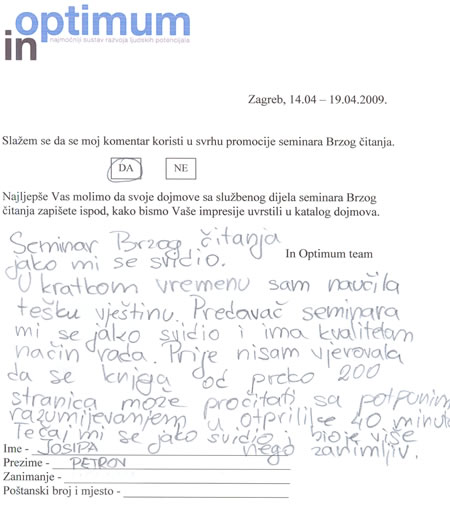 in optimum
najmoćniji sustav razvoja ljudskih potencijala
Zagreb, 14.04 – 19.04.2009.
Slažem se da se moj komentar koristi u svrhu promocije seminara Brzog čitanja.
DA NE
Najljepše Vas molimo da svoje dojmove sa službenog dijela seminara Brzog
čitanja zapišete ispod, kako bismo Vaše impresije uvrstili u katalog dojmova.
In Optimum team
Seminar Brzog čitanja
jako mi se svidio.
U kratkom vremenu sam naučila
tešku vještinu. Predavač seminara
mi se jako svidio i ima kvalitetan
način rada. Prije nisam vjerovala
da se knjiga od preko 200
stranica može pročitati sa potpunim
razumijevanjem u otprilike 40 minuta
Tečaj mi se jako svidio i bio je više
nego zanimljiv.
Ime - JOSIPA
Prezime - PETROV
Zanimanje -
Poštanski broj i mjesto -